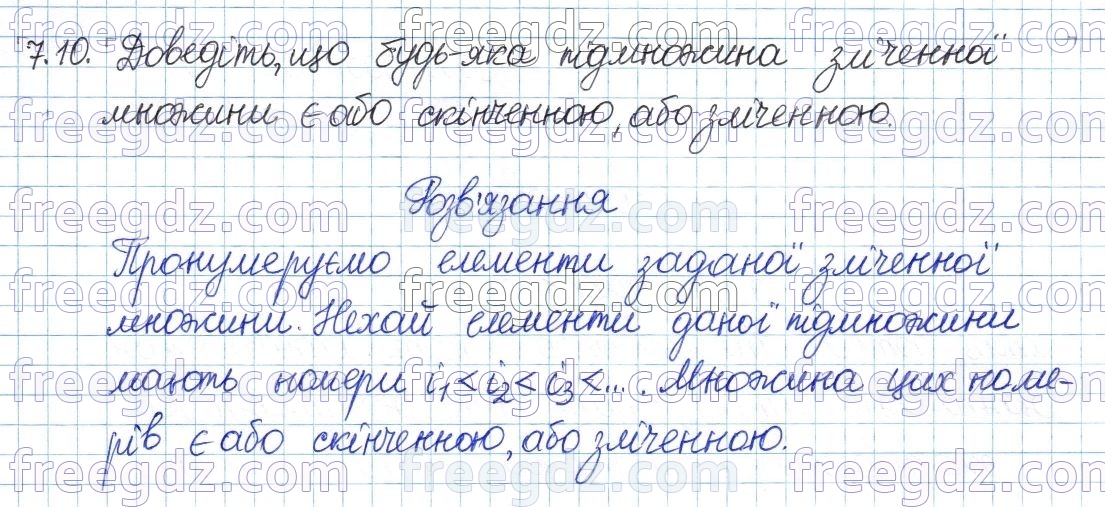 7.10. Доведіть, що будь-яка підмножина зліченної
множини є або скінченною, або зліченною.
Розв'язання
Пронумеруємо елементи заданої зліченної
множини. Нехай елементи даної підмножини
мають номери i₁ < i₂ < i₃ < ... . Множина цих номе-
рів є або скінченною, або зліченною.
freegdz.com